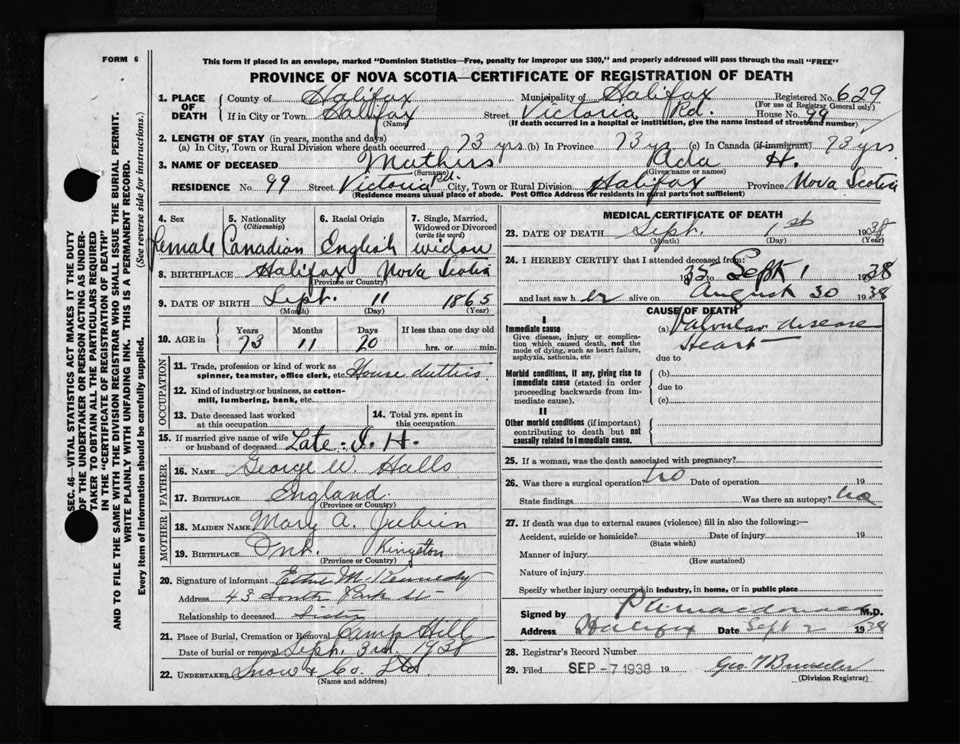 FORM 6
This form if placed in an envelope, marked "Dominion Statistics—Free, penalty for improper use $300," and properly addressed will pass through the mail "FREE"
PROVINCE OF NOVA SCOTIA—CERTIFICATE OF REGISTRATION OF DEATH
1. PLACE OF DEATH (a) County of Halifax Municipality of Halifax Registered No. 629
(For use of Registrar General only)
If in City or Town Halifax Street Victoria Rd. House No. 99
(Name) (If death occurred in a hospital or institution, give the name instead of street and number)
2. LENGTH OF STAY (in years, months and days)
(a) In City, Town or Rural Division where death occurred 73 yrs (b) In Province 73 yrs (c) In Canada (if immigrant) 73 yrs
3. NAME OF DECEASED Mathers Ada H.
(Surname) (Given name or names)
RESIDENCE No. 99 Street Victoria Rd. City, Town or Rural Division Halifax Province Nova Scotia
(Residence means usual place of abode. Post Office Address for residents in rural parts not sufficient)
4. Sex 5. Nationality (Citizenship) 6. Racial Origin 7. Single, Married, Widowed or Divorced (write the word)
Female Canadian English widow
8. BIRTHPLACE Halifax Nova Scotia
(Province or Country)
9. DATE OF BIRTH Sept. 11 1865
(Month) (Day) (Year)
10. AGE in Years Months Days If less than one day old
73 11 20 hrs. or min.
OCCUPATION
11. Trade, profession or kind of work as spinner, teamster, office clerk, etc. House duties.
12. Kind of industry or business, as cotton-mill, lumbering, bank, etc.
13. Date deceased last worked at this occupation 14. Total yrs. spent in this occupation
15. If married give name of wife or husband of deceased Late: I. H.
FATHER
16. NAME George W. Halls
17. BIRTHPLACE England.
(Province or Country)
MOTHER
18. MAIDEN NAME Mary A. Jubien
19. BIRTHPLACE Ont. Kingston
(Province or Country)
20. Signature of informant McKennedy
Address 43 South Park St
Relationship to deceased Sister
21. Place of Burial, Cremation or Removal Camp Hill
Date of burial or removal Sept. 3rd. 1938
22. UNDERTAKER Snow & Co. Ltd.
(Name and address)
MEDICAL CERTIFICATE OF DEATH
23. DATE OF DEATH Sept. 1st 1938
(Month) (Day) (Year)
24. I HEREBY CERTIFY that I attended deceased from:
35 to Sept 1 1938
and last saw her alive on August 30 1938
CAUSE OF DEATH
I
Immediate cause (a) Valvular disease
Give disease, injury or complication which caused death, not the mode of dying, such as heart failure, asphyxia, asthenia, etc
Heart
due to
Morbid conditions, if any, giving rise to immediate cause (stated in order proceeding backwards from immediate cause).
(b)
due to
(c)
II
Other morbid conditions (if important) contributing to death but not causally related to immediate cause.
25. If a woman, was the death associated with pregnancy?
26. Was there a surgical operation? no Date of operation 19
State findings Was there an autopsy? no
27. If death was due to external causes (violence) fill in also the following:—
Accident, suicide or homicide? Date of injury 19
(State which)
Manner of injury
(How sustained)
Nature of injury
Specify whether injury occurred in industry, in home, or in public place
Signed by M.D.
Address Halifax Date Sept 2 1938
28. Registrar's Record Number
29. Filed SEP -7 1938 19 Geo.
(Division Registrar)
SEC. 46—VITAL STATISTICS ACT MAKES IT THE DUTY
OF THE UNDERTAKER OR PERSON ACTING AS UNDER-
TAKER TO OBTAIN ALL THE PARTICULARS REQUIRED
IN THE "CERTIFICATE OF REGISTRATION OF DEATH"
AND TO FILE THE SAME WITH THE DIVISION REGISTRAR WHO SHALL ISSUE THE BURIAL PERMIT.
WRITE PLAINLY WITH UNFADING INK. THIS IS A PERMANENT RECORD.
Every item of information should be carefully supplied. (See reverse side for instructions.)